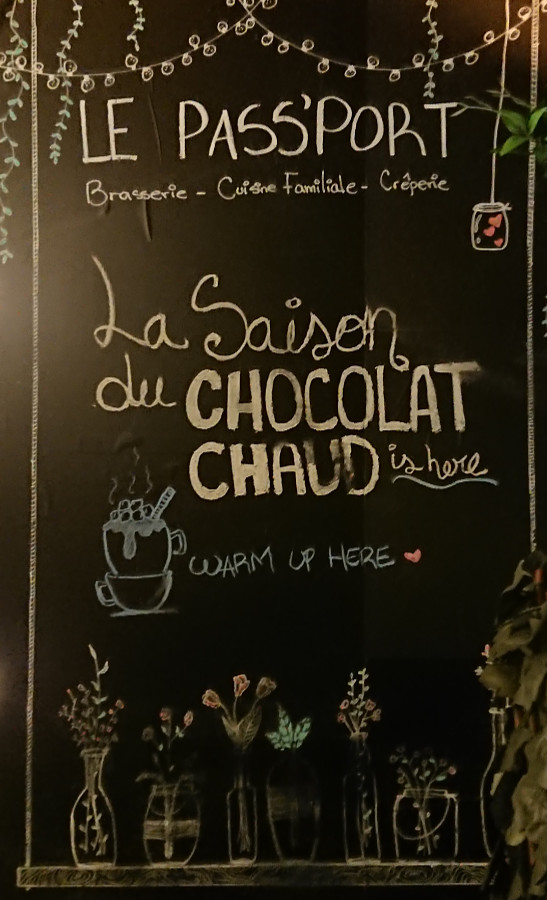 LE PASS'PORT
Brasserie - Cuisine Familiale - Crêperie
La Saison
du CHOCOLAT
CHAUD is here
WARM UP HERE